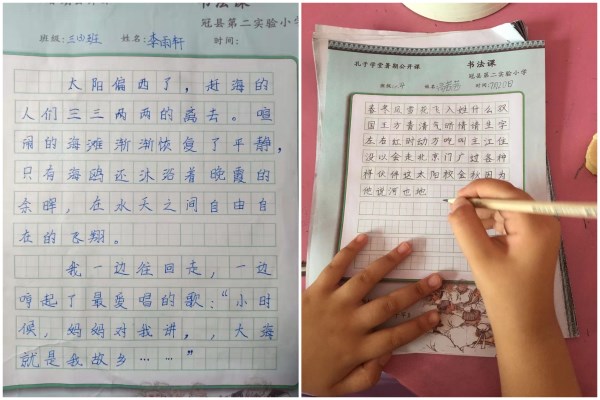 冠县第二实验小学
班级:三(4)班 姓名:李雨轩 时间:
太阳偏西了，赶海的
人们三三两两的离去。喧
闹的海滩渐渐恢复了平静，
只有海鸥还沐浴着晚霞的
余晖，在水天之间自由自
在的飞翔。
我一边往回走，一边
哼起了最爱唱的歌：“小时
候，妈妈对我讲，，大海
就是我故乡……”
孔子学堂暑期公开课 书法课
冠县第二实验小学
班级: 姓名: 时间:
春冬风雪花飞入姓什么双
国王方青清气晴情请生字
左右红时动万吃叫主江住
没以会走北京门广过各种
样伙伴这太阳校金秋因为
他说河也地